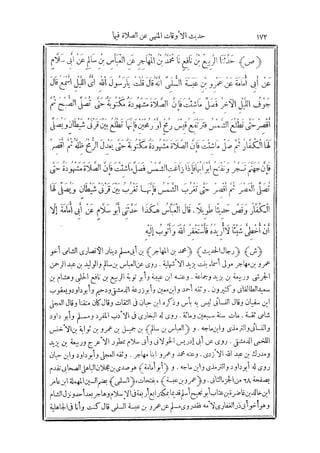 ١٧٢ حديث الأوقات المنهى عن الصلاة فيها
(ص) حَدَّثَنَا الرَّبِيعُ بْنُ نَافِعٍ نَا مُحَمَّدُ بْنُ الْمُهَاجِرِ عَنِ الْعَبَّاسِ بْنِ سَالِمٍ عَنْ أَبِي سَلَّامٍ
عَنْ أَبِي أُمَامَةَ عَنْ عَمْرِو بْنِ عَبَسَةَ السُّلَمِيِّ أَنَّهُ قَالَ قُلْتُ يَارَسُولَ اللهِ أَيُّ اللَّيْلِ أَسْمَعُ قَالَ
جَوْفُ اللَّيْلِ الْآخِرُ فَصَلِّ مَاشِئْتَ فَإِنَّ الصَّلَاةَ مَشْهُودَةٌ مَكْتُوبَةٌ حَتَّى تُصَلِّيَ الصُّبْحَ ثُمَّ
أَقْصِرْ حَتَّى تَطْلُعَ الشَّمْسُ فَتَرْتَفِعَ قِيسَ رُمْحٍ أَوْ رُمْحَيْنِ فَإِنَّهَا تَطْلُعُ بَيْنَ قَرْنَيْ شَيْطَانٍ وَيُصَلِّي
لَهَا الْكُفَّارُ ثُمَّ صَلِّ مَاشِئْتَ فَإِنَّ الصَّلَاةَ مَشْهُودَةٌ مَكْتُوبَةٌ حَتَّى يَعْدِلَ الرُّمْحُ ظِلَّهُ ثُمَّ أَقْصِرْ
فَإِنَّ جَهَنَّمَ تُسْجَرُ وَتُفْتَحُ أَبْوَابُهَا فَإِذَا زَاغَتِ الشَّمْسُ فَصَلِّ مَاشِئْتَ فَإِنَّ الصَّلَاةَ مَشْهُودَةٌ حَتَّى
تُصَلِّيَ الْعَصْرَ ثُمَّ أَقْصِرْ حَتَّى تَغْرُبَ الشَّمْسُ فَإِنَّهَا تَغْرُبُ بَيْنَ قَرْنَيْ شَيْطَانٍ وَيُصَلِّي لَهَا
الْكُفَّارُ وَقَصَّ حَدِيثًا طَوِيلًا . قَالَ الْعَبَّاسُ هَكَذَا حَدَّثَنِي أَبُو سَلَّامٍ عَنْ أَبِي أُمَامَةَ إِلَّا
أَنْ أُخْطِئَ شَيْئًا لَا أُرِيدُهُ فَأَسْتَغْفِرُ اللهَ وَأَتُوبُ إِلَيْهِ
(ش) (رجال الحديث) (محمد بن المهاجر) بن أبى مسلم دينار الأنصارى الشامى أخو
عمرو بن مهاجر مولى أسماء بنت يزيد الأشهلية . روى عن العباس بن سالم والوليد بن عبد الرحمن
الجرشى وربيعة بن يزيد وجماعة . وعنه ابن عيينة وأبو توبة الربيع بن نافع الحلبى وهشام بن
سعيد الطالقانى وكثيرون . وثقه أحمد وابن معين وأبو زرعة الدمشقى ودحيم وأبو داود ويعقوب
ابن سفيان وقال النسائى ليس به بأس وذكره ابن حبان فى الثقات وقال كان متقنا وقال العجلى
شامى ثقة . مات سنة سبعين ومائة . روى له البخارى فى الأدب المفرد ومسلم وأبو داود
والنسائى والترمذى وابن ماجه . و (العباس بن سالم) بن جميل بن عمرو بن ثوابة بن الأخنس
اللخمى الدمشقى . روى عن أبى إدريس الخولانى وأبى سلام ممطور الأعرج وربيعة بن يزيد
ومدرك بن عبد الله الأزدى . وعنه محمد وعمرو ابنا مهاجر . وثقه العجلى وأبو داود وابن حبان
روى له أبو داود والترمذى وابن ماجه . و (أبو أمامة) هو صدى بن عجلان الباهلى الصحابى تقدم
بصفحة ٦٨ من الجزء الثانى . و (عمرو بن عبسة) بفتحات (السلمى) بضم السين المهملة ابن عامر
ابن خالد بن غاضرة بن عتاب أبو نجيح أسلم قديما بمكة رابع أربعة فى الإسلام وهاجر بعد أحد ونزل الشام
وهو أخو أبى ذر الغفارى لأمه فقد روى مسلم عن عمرو بن عبسة السلمى قال كنت وأنا فى الجاهلية